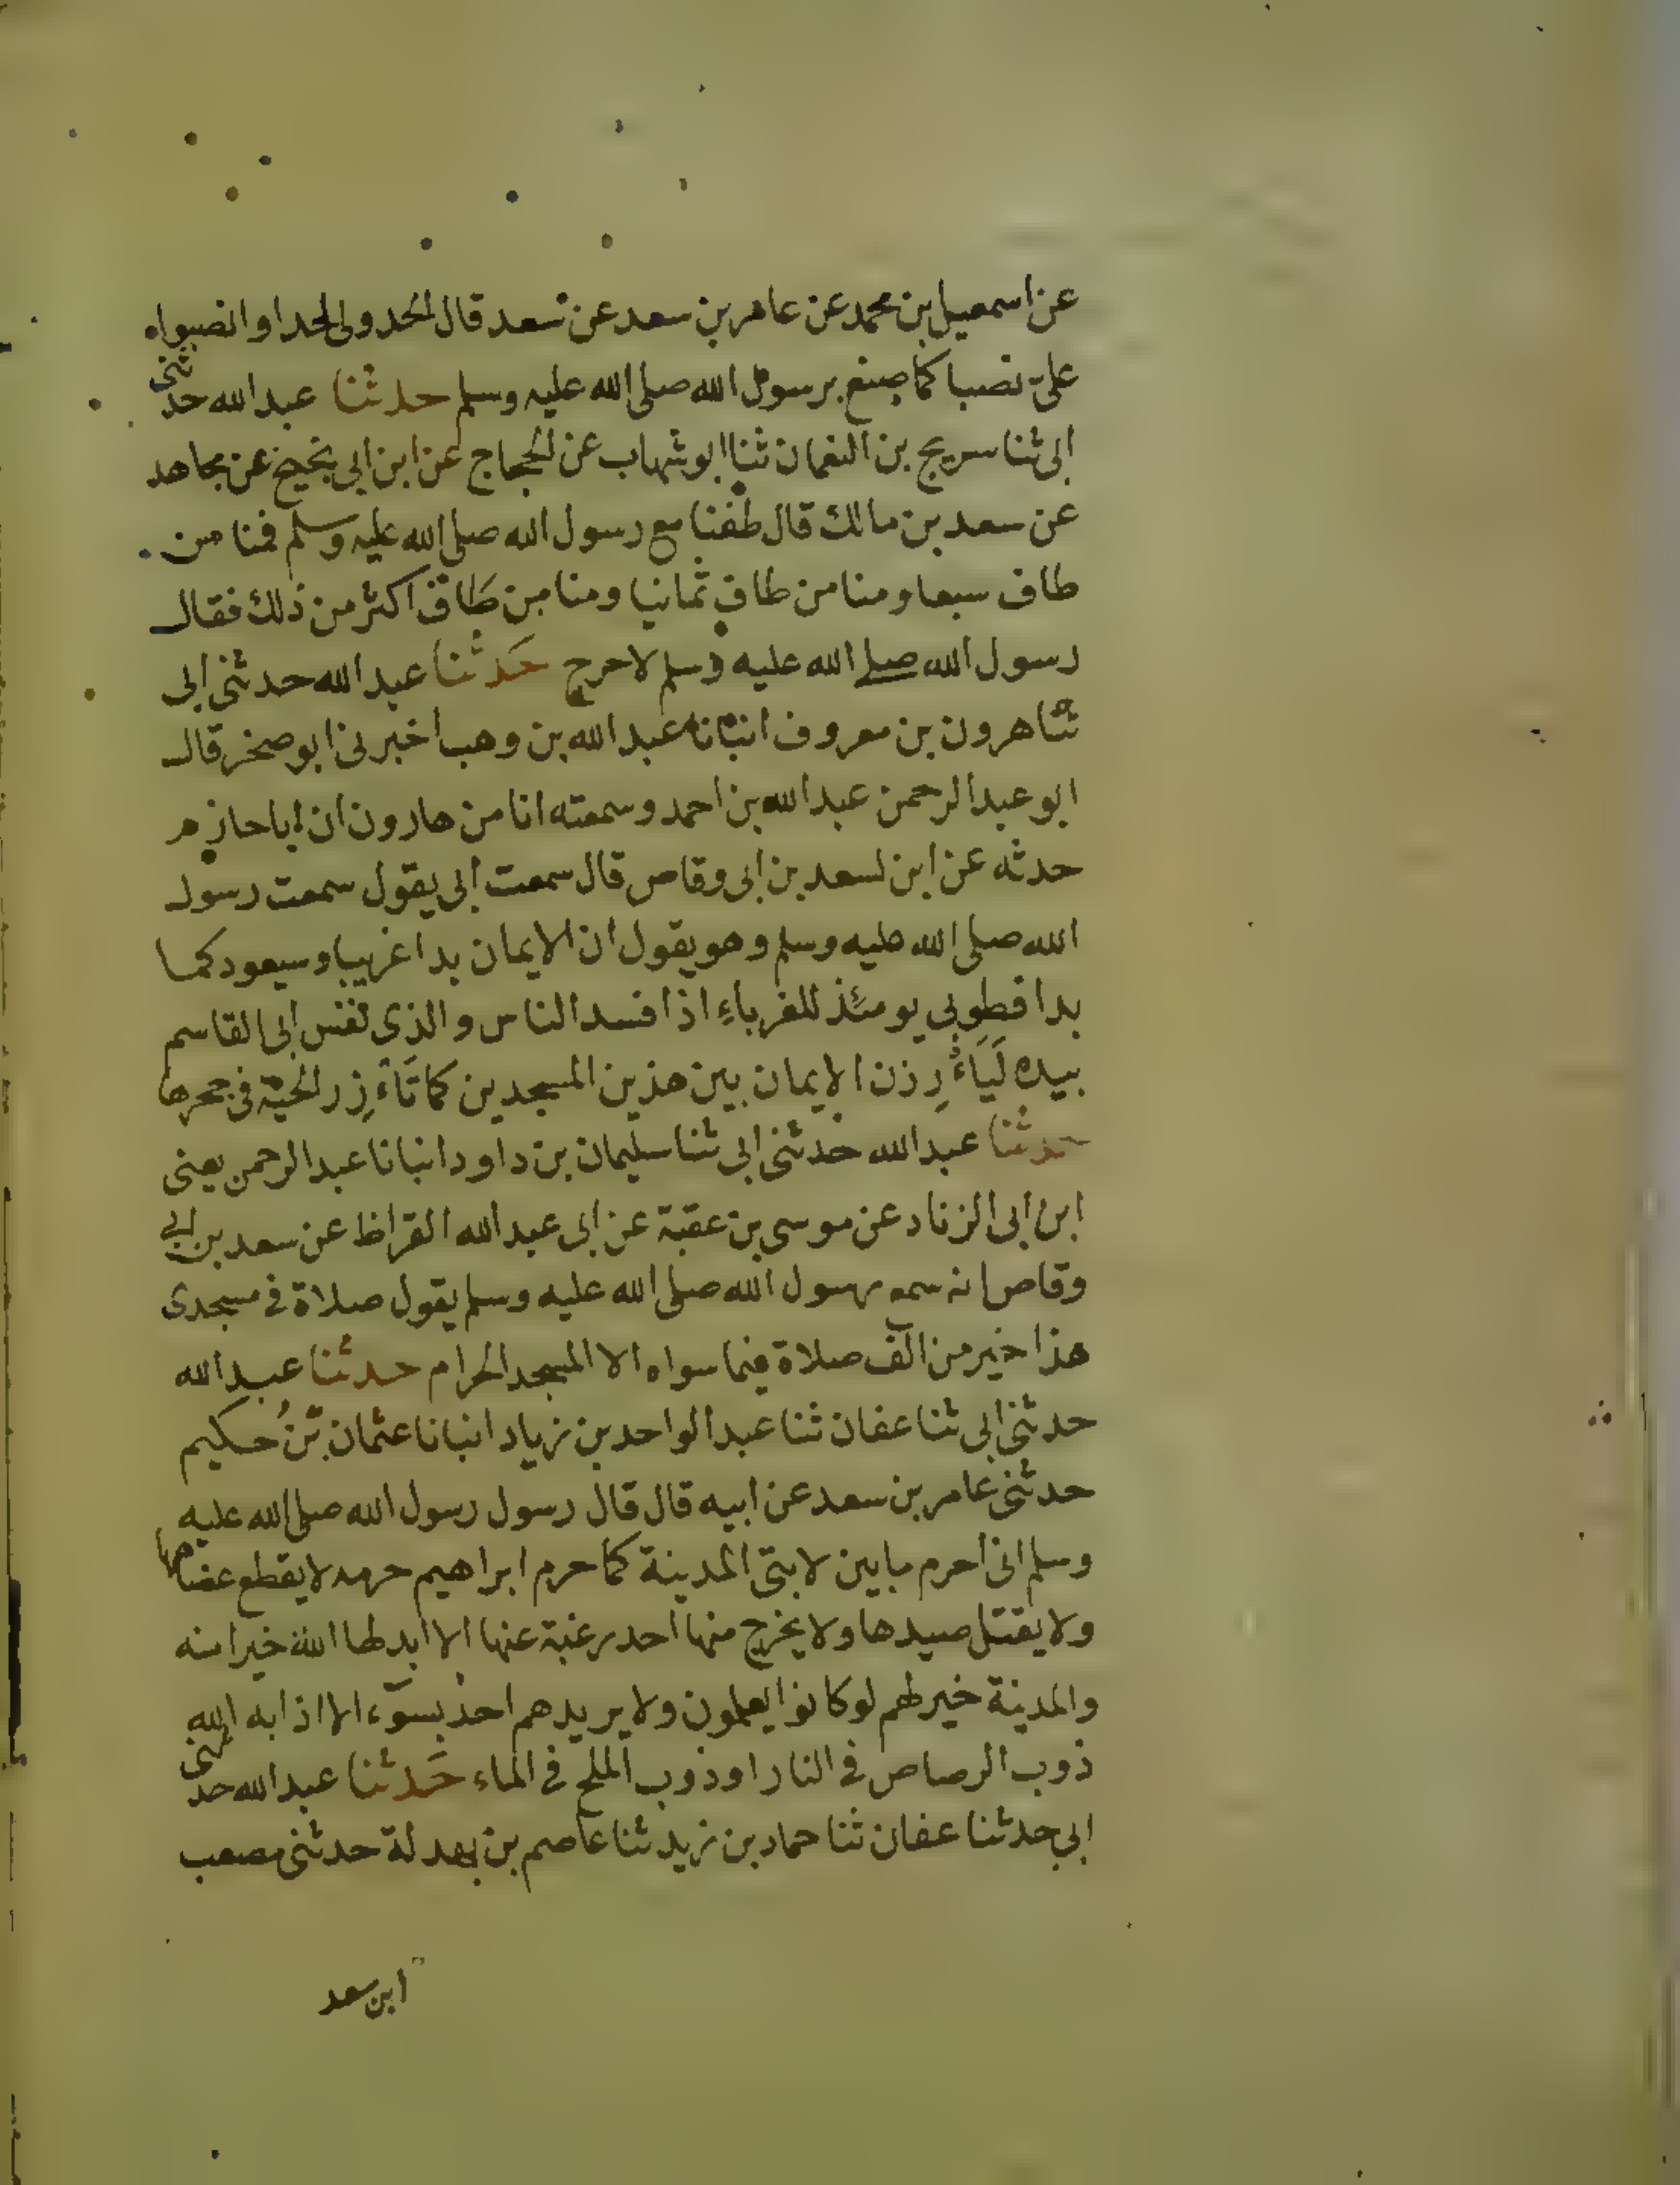 عن اسمعيل بن محمد عن عامر بن سعد عن سعد قال الحدولى لحدا وانصبوا
علىّ نصبا كما صنع برسول الله صلى الله عليه وسلم حدثنا عبد الله حدثنى
ابى ثنا سريج بن النعمان ثنا ابو شهاب عن الحجاج عن ابن ابى نجيح عن مجاهد
عن سعد بن مالك قال طفنا مع رسول الله صلى الله عليه وسلم فمنا من
طاف سبعا ومنا من طاف ثمانيا ومنا من طاف اكثر من ذلك فقال
رسول الله صلى الله عليه وسلم لا حرج حدثنا عبد الله حدثنى ابى
ثنا هرون بن معروف انبانا عبد الله بن وهب اخبرنى ابو صخر قال
ابو عبد الرحمن عبد الله بن احمد وسمعته انا من هارون ان ابا حازم
حدثه عن ابن لسعد بن ابى وقاص قال سمعت ابى يقول سمعت رسول
الله صلى الله عليه وسلم وهو يقول ان الايمان بدا غريبا وسيعود كما
بدا فطوبى يومئذ للغرباء اذا فسد الناس والذى نفس ابى القاسم
بيده لَيَاءْرِزن الايمان بين هذين المسجدين كما تَاءْرِز الحية فى جحرها
حدثنا عبد الله حدثنى ابى ثنا سليمان بن داود انبانا عبد الرحمن يعنى
ابن ابى الزناد عن موسى بن عقبة عن ابى عبد الله القراظ عن سعد بن ابى
وقاص انه سمع رسول الله صلى الله عليه وسلم يقول صلاة فى مسجدى
هذا خير من الف صلاة فيما سواه الا المسجد الحرام حدثنا عبد الله
حدثنى ابى ثنا عفان ثنا عبد الواحد بن زياد انبانا عثمان بن حكيم
حدثنى عامر بن سعد عن ابيه قال قال رسول رسول الله صلى الله عليه
وسلم انى احرم ما بين لابتى المدينة كما حرم ابراهيم حرمه لا يقطع عضاهها
ولا يقتل صيدها ولا يخرج منها احد رغبة عنها الا ابدلها الله خيرا منه
والمدينة خير لهم لو كانوا يعلمون ولا يريدهم احد بسوء الا اذابه الله
ذوب الرصاص فى النار او ذوب الملح فى الماء حدثنا عبد الله حدثنى
ابى حدثنا عفان ثنا حماد بن زيد ثنا عاصم بن بهدلة حدثنى مصعب
ابن سعد